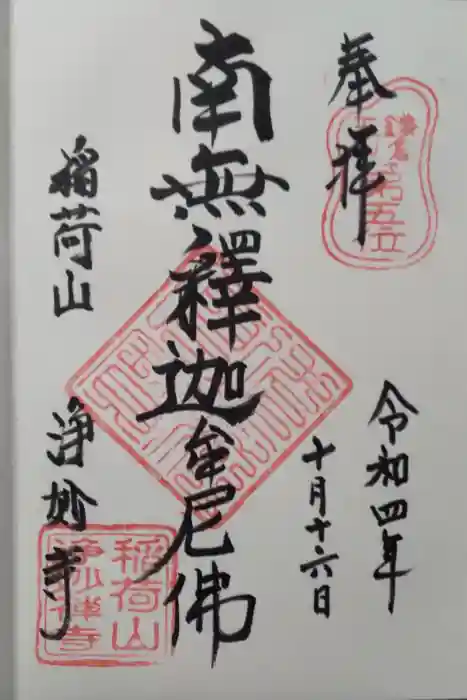 奉拝
鎌倉
第五位
令和四年
十月十六日
南無釋迦牟尼佛
稲荷山
浄妙寺
稲荷山
浄妙禅寺